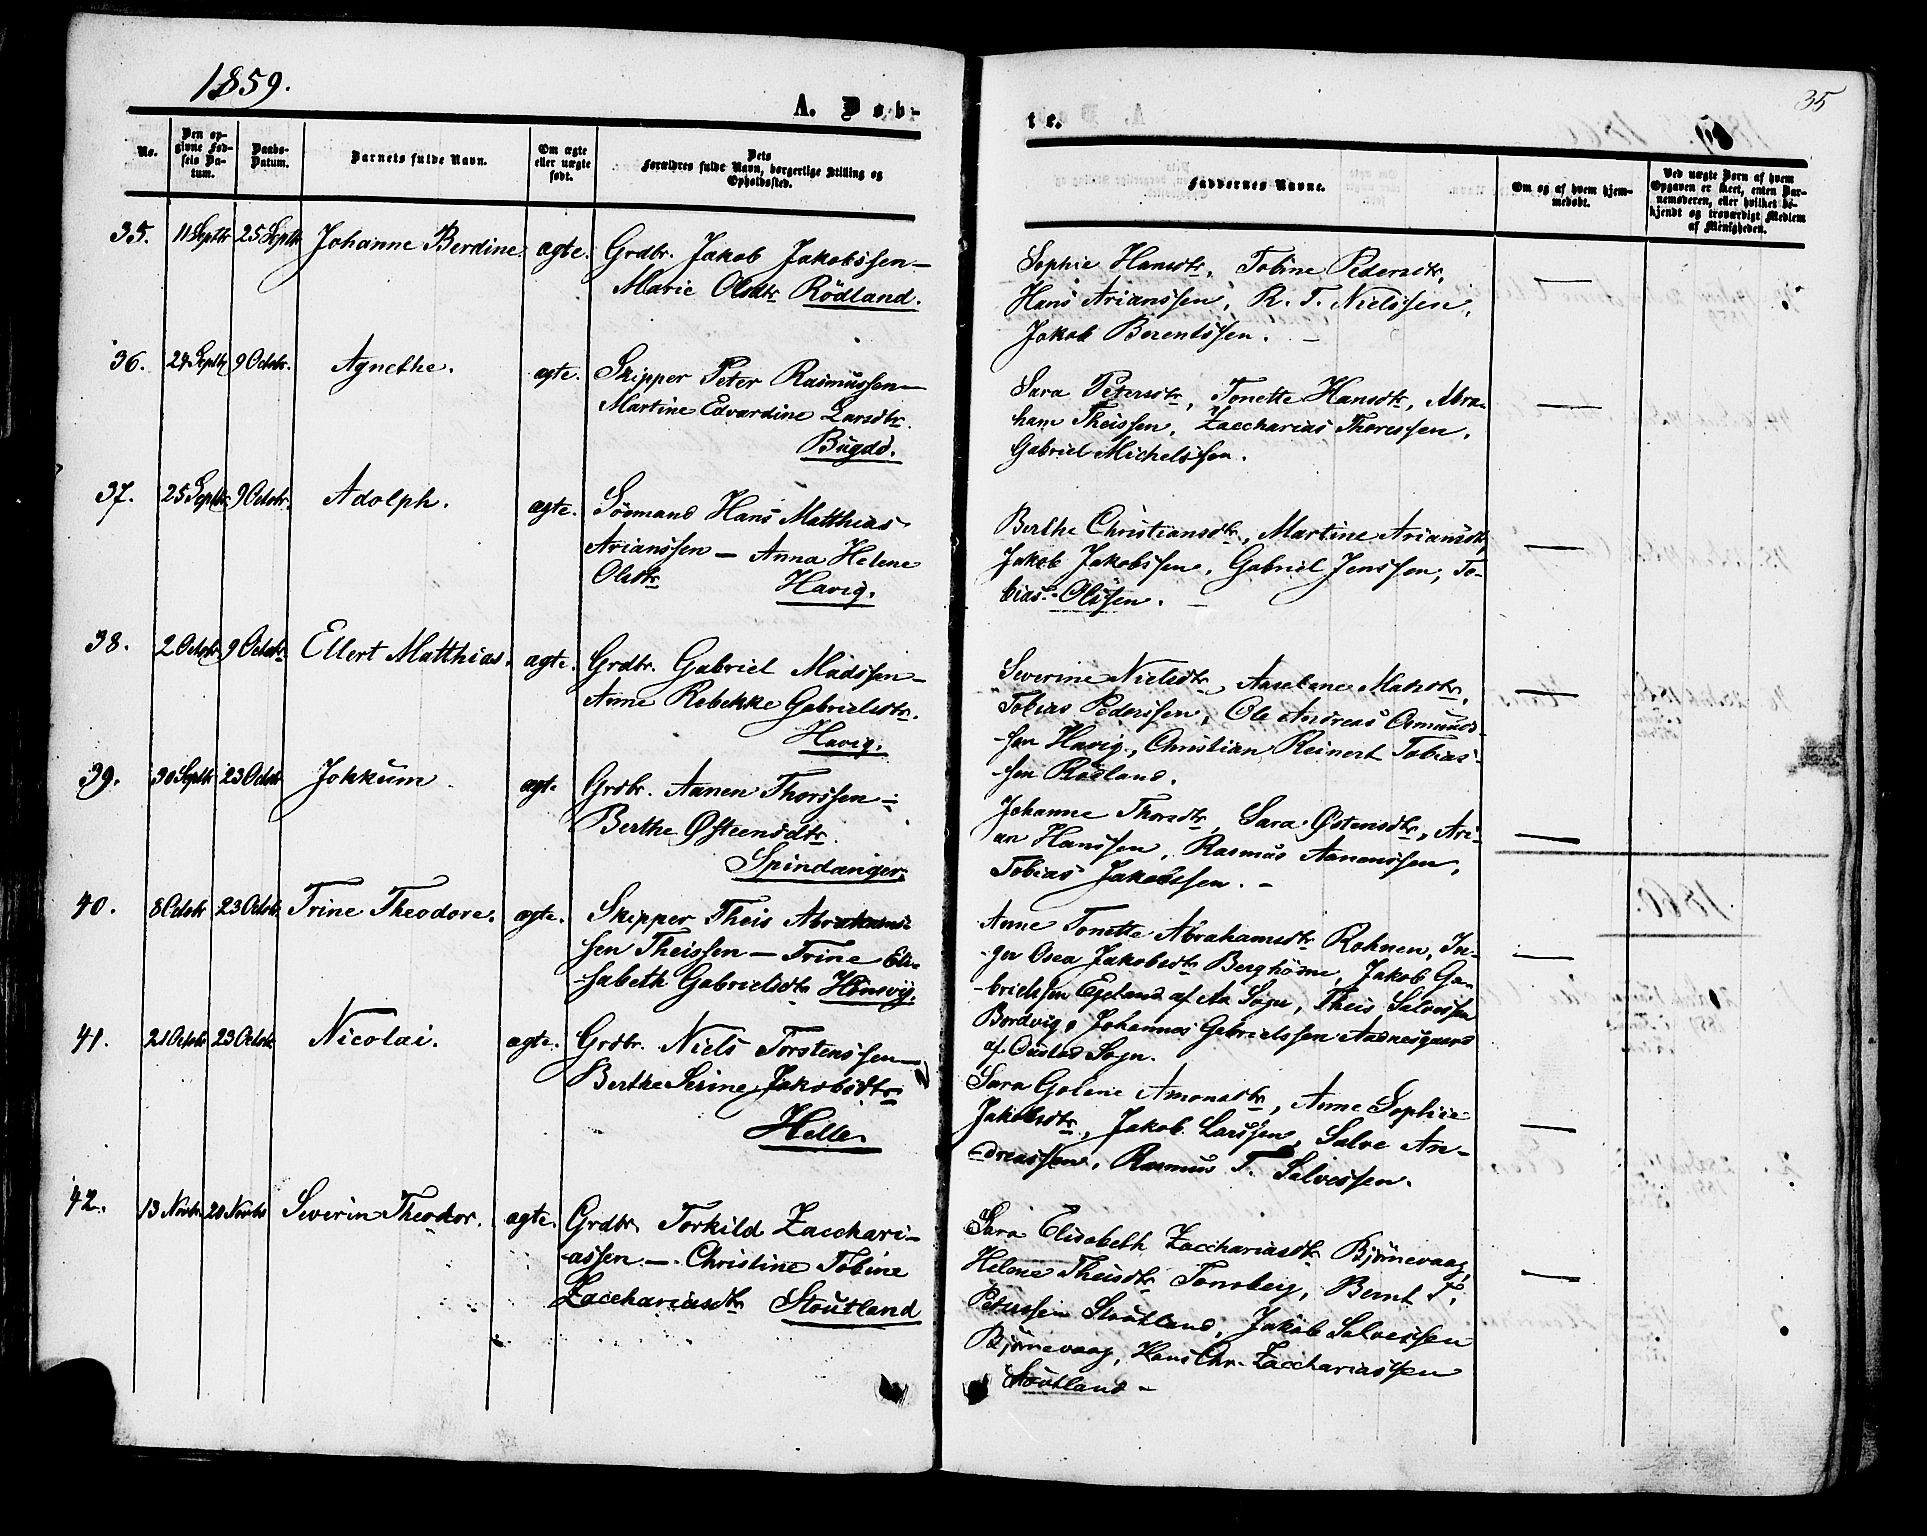 1859.
35
A. Døb-
te.
No.
Den op-
givne Fød-
sels Da-
tum.
Daabs-
Datum.
Barnets fulde Navn.
Om ægte
eller uægte
født.
Dets
Forældres fulde Navn, borgerlige Stilling og
Opholdssted.
Faddernes Navne.
Om og af hvem hjem-
medøbt.
Ved uægte Børn af hvem
Opgaven er skeet, enten Bar-
nemoderen, eller hvilket be-
kjendt og troværdigt Medlem
af Menigheden.
35. 11 Septbr 25 Septbr Johanne Berdine. ægte. Grdbr. Jakob Jakobssen –
Marie Olsdtr Rödland.
Sophie Hansdtr, Tobine Pedersdtr,
Hans Arianssen, R. T. Nielssen,
Jakob Berentssen. –
36. 24 Septbr 9 Octobr. Agnethe. ægte. Skipper Peter Rasmussen –
Martine Edvardine Larsdtr.
Bugdö.
Sara Petersdtr, Tonette Hansdtr, Abra-
ham Theissen, Zaccharias Thoressen,
Gabriel Michelssen.
37. 25 Septbr 9 Octobr. Adolph. ægte. Sömand Hans Matthias
Arianssen – Anna Helene
Olsdtr Havig.
Berthe Christiansdtr, Martine Ariansdtr,
Jakob Jakobssen, Gabriel Jenssen, To-
bias Olssen. –
38. 2 Octobr 9 Octobr Ellert Matthias. ægte. Grdbr. Gabriel Madssen –
Anne Rebekke Gabrielsdtr.
Havig.
Severine Nielsdtr, Aaselene Madsdtr,
Tobias Pederssen, Ole Andreas Osmunds-
sen Havig, Christian Reinert Tobias-
sen Rödland.
39. 30 Septbr 23 Octobr Jokkum ægte. Grdbr. Aanen Thorssen –
Berthe Østensdtr.
Spindanger.
Johanne Thorsdtr, Sara Østensdtr, Ari-
an Hanssen, Rasmus Aanenssen,
Tobias Jakobssen. –
40. 8 Octobr 23 Octobr. Trine Theodore. ægte. Skipper Theis Abrahams-
sen Theissen – Trine Eli-
sabeth Gabrielsdtr Hönsvig.
Anne Tonette Abrahamsdtr Rohnen, In-
ger Osea Jakobsdtr Berghöine, Jakob Ga-
brielssen Egeland af Aa Sogn, Theis Salvessen
Bordvig, Johannes Gabrielssen Aadnesgaard
af Oustad Sogn.
41. 21 Octobr 23 Octobr. Nicolai. ægte. Grdbr. Niels Torstenssen –
Berthe Serine Jakobsdtr
Helle.
Sara Golene Amonsdtr, Anne Sophie
Jakobsdtr, Jakob Larssen, Salve An-
dreassen, Rasmus T. Salvessen.
42. 13 Novbr. 20 Novbr Severin Theodor. ægte. Grdbr. Torkild Zacchari-
assen. – Christine Tobine
Zacchariasdtr Stoutland
Sara Elisabeth Zacchariasdtr Björnevaag,
Helene Theisdtr Tonsberg, Bernt T.
Peterssen Stoutland, Jakob Salvessen
Björnevaag, Hans Chr. Zacchariassen
Stoutland –